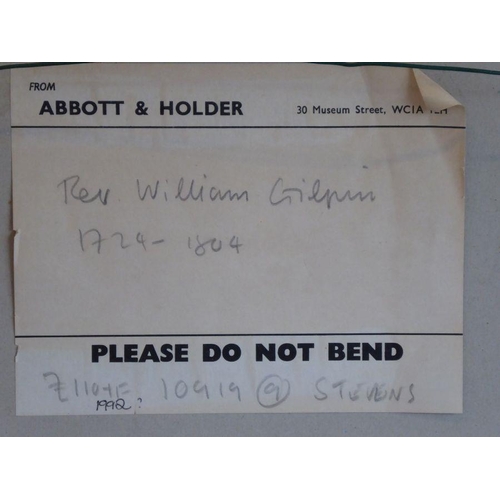 FROM
ABBOTT & HOLDER 30 Museum Street, WC1A
Rev. William Gilpin
1724 - 1804
PLEASE DO NOT BEND
10919 (9) STEVENS
1992?